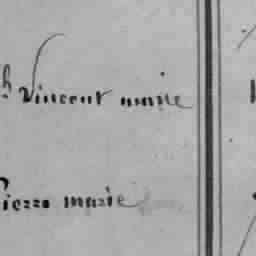 h Vincent marie
Pierre marie